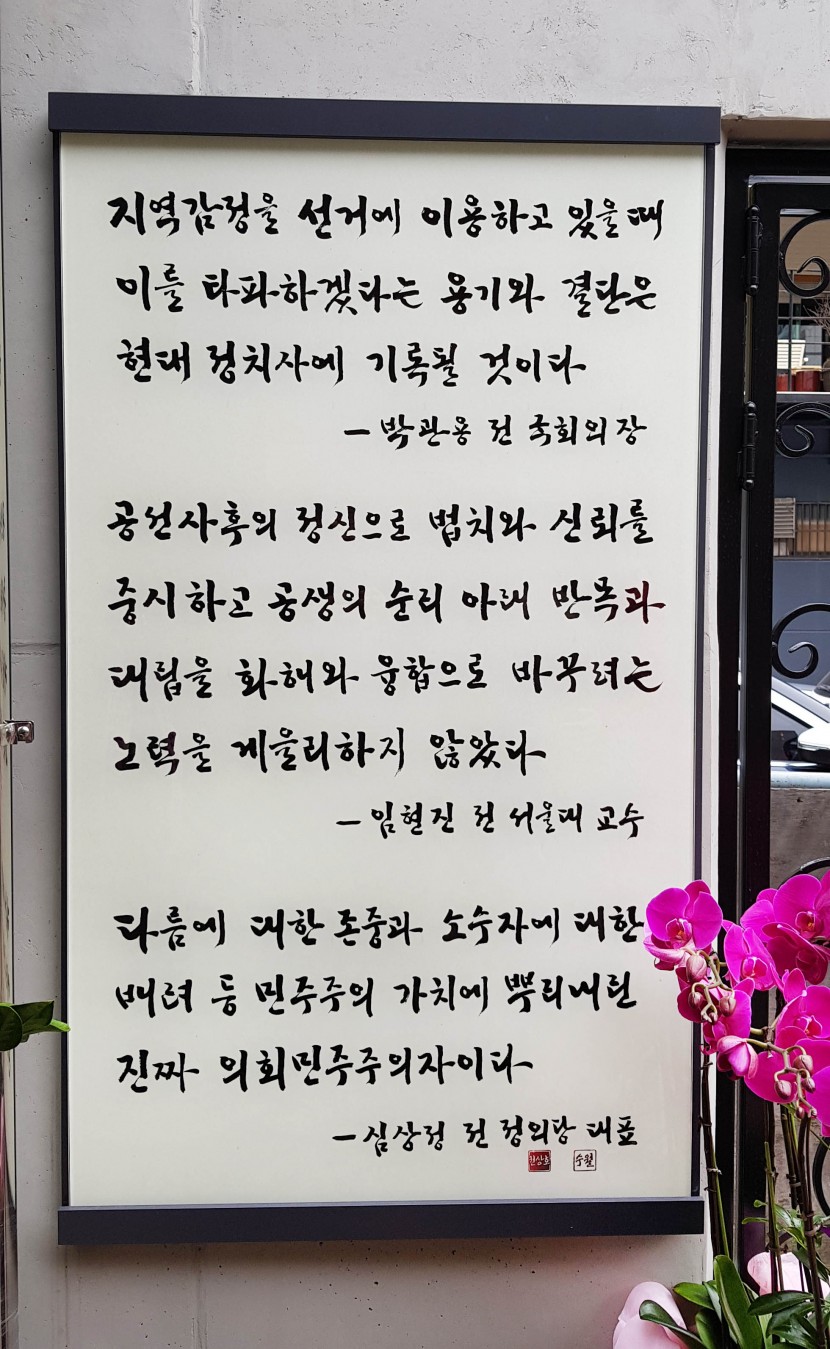 지역감정을 선거에 이용하고 있을 때
이를 타파하겠다는 용기와 결단은
현대 정치사에 기록될 것이다
- 박관용 전 국회의장
공선사후의 정신으로 법치와 신뢰를
중시하고 공생의 순리 아래 반목과
대립을 화해와 융합으로 바꾸려는
노력을 게을리하지 않았다
- 임현진 전 서울대 교수
다름에 대한 존중과 소수자에 대한
배려 등 민주주의 가치에 뿌리내린
진짜 의회민주주의자이다
- 심상정 전 정의당 대표
권상호 수월